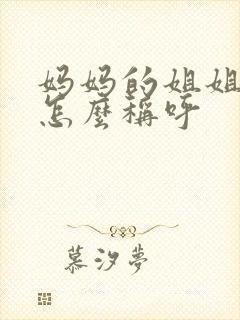 妈妈的姐姐
怎麼稱呼
慕汐夢